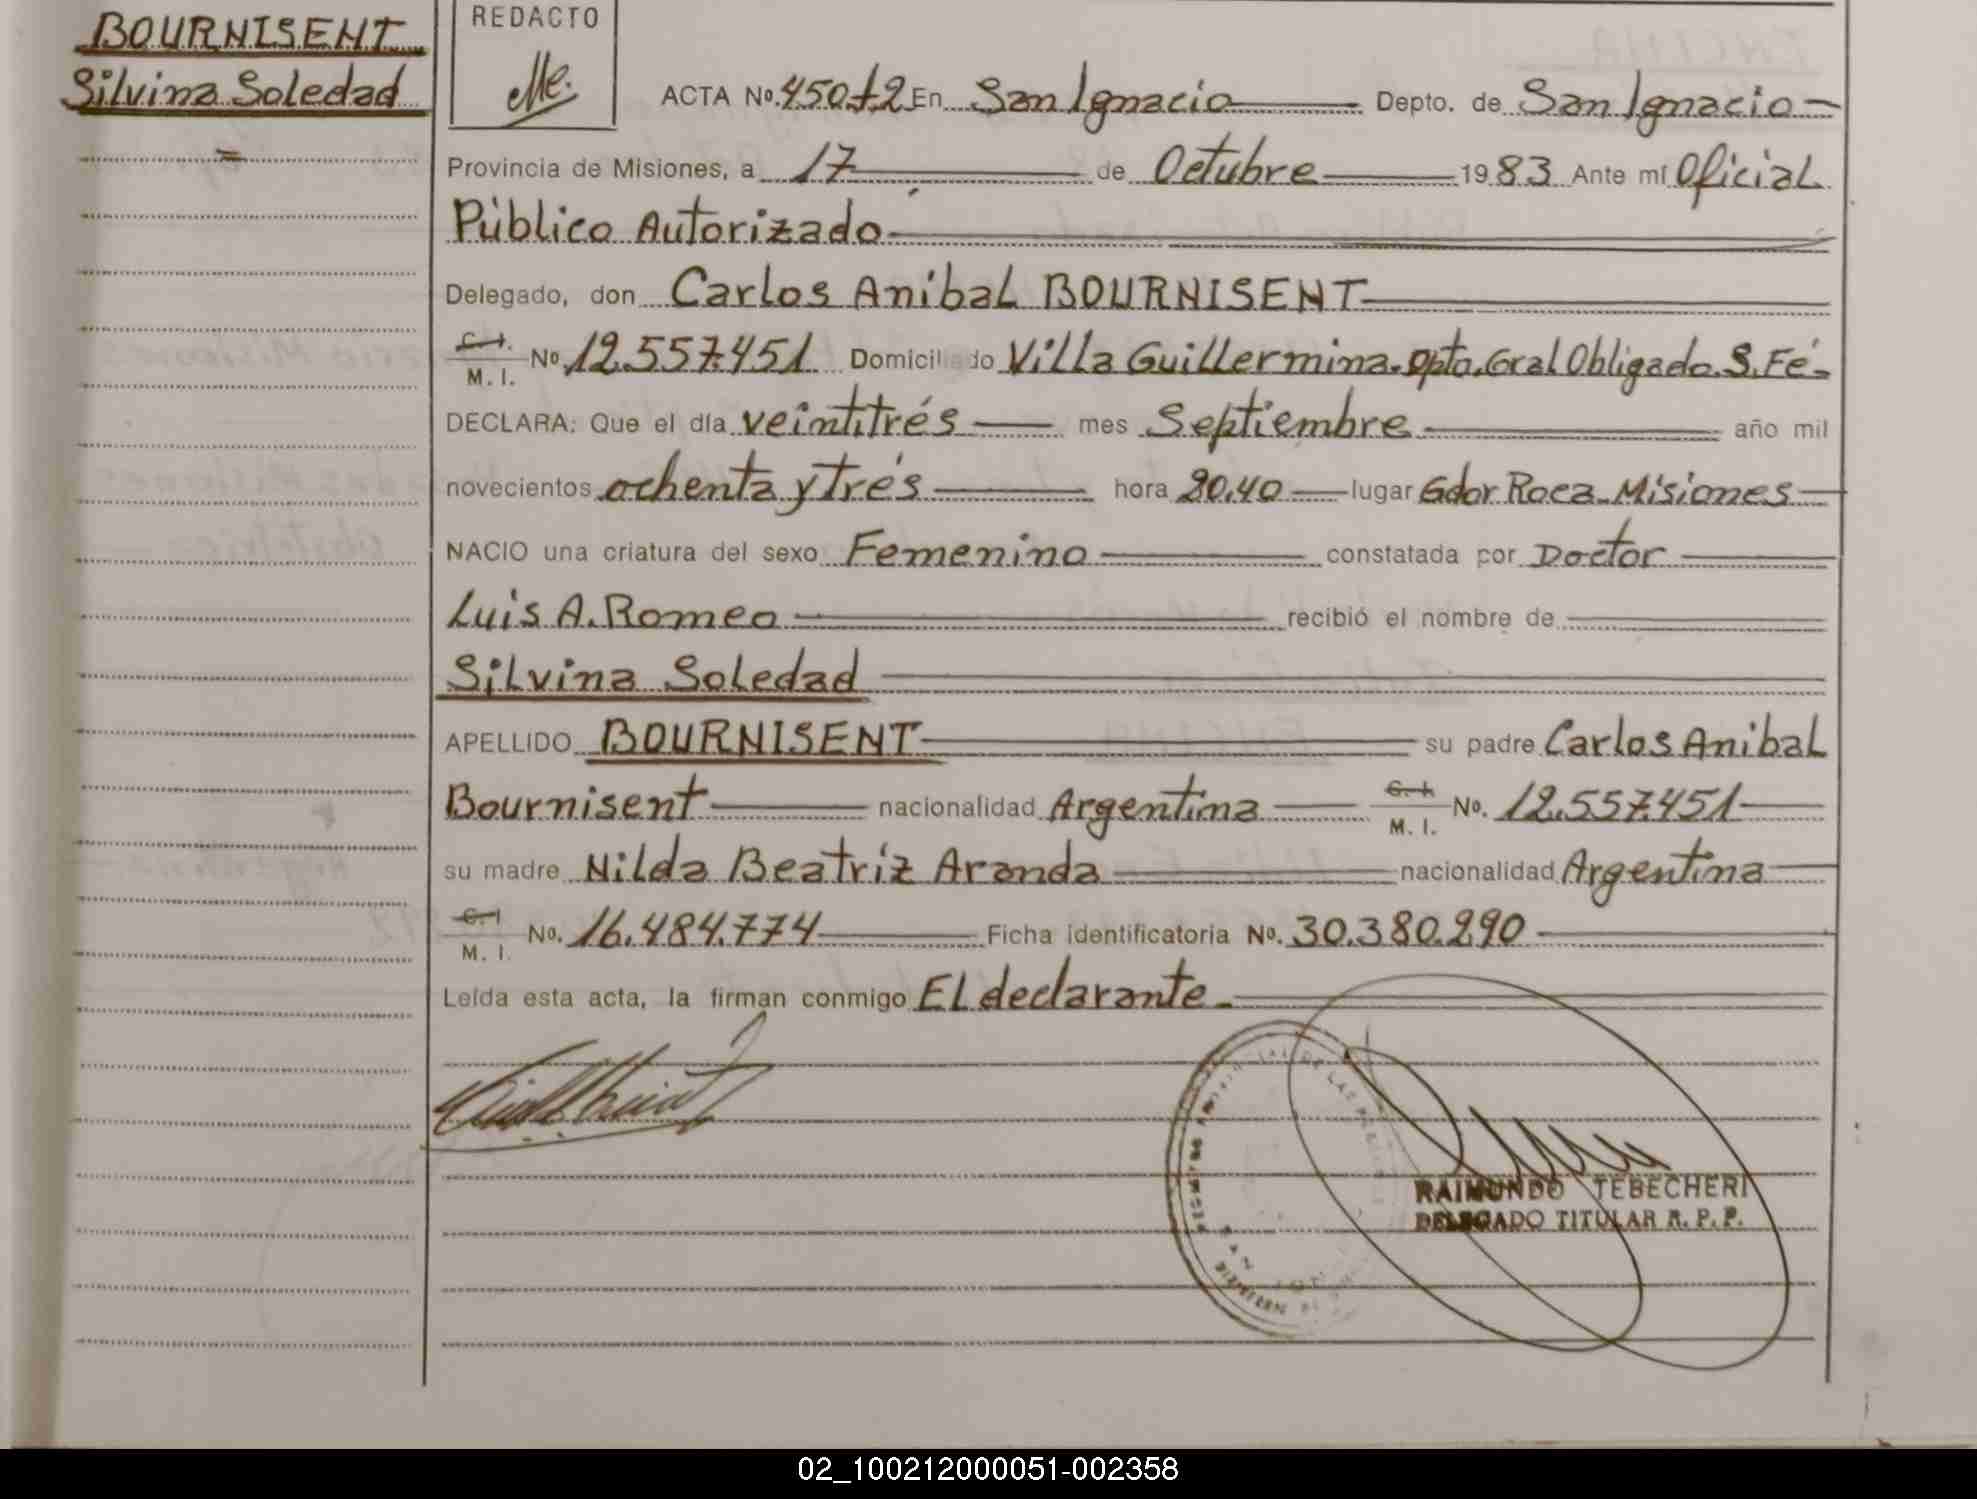 BOURNISENT
Silvina Soledad
REDACTO
ACTA Nº. 450 t2 En San Ignacio Depto. de San Ignacio
Provincia de Misiones, a 17 de Octubre 1983 Ante mí Oficial
Público Autorizado
Delegado, don Carlos Anibal BOURNISENT
C. I. M. I. Nº. 12.557.451 Domiciliado Villa Guillermina. Dpto. Gral Obligado. S. Fé.
DECLARA: Que el día veintitrés mes Septiembre año mil
novecientos ochenta y trés hora 20.40 lugar Gdor Roca Misiones
NACIO una criatura del sexo Femenino constatada por Doctor
Luis A. Romeo recibió el nombre de
Silvina Soledad
APELLIDO BOURNISENT su padre Carlos Anibal
Bournisent nacionalidad Argentina C. I. M. I. Nº. 12.557.451
su madre Nilda Beatriz Aranda nacionalidad Argentina
C. I. M. I. Nº. 16.484.774 Ficha identificatoria Nº. 30.380.290
Leída esta acta, la firman conmigo El declarante
RAIMUNDO TEBECHERI
DELEGADO TITULAR R. P. P.
02_100212000051-002358